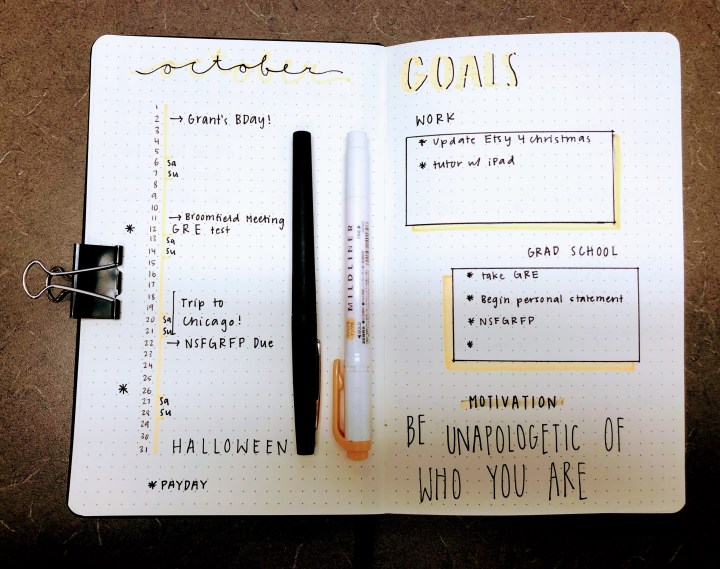 october
1
2 → Grant's BDay!
3
4
5
6 Sa
7 Su
8
9
10
11 → Broomfield Meeting
* 12 GRE test
13 Sa
14 Su
15
16
17
18
19 Trip to
20 Sa Chicago!
21 Su
22 → NSFGRFP Due
23
24
25
* 26
27 Sa
28 Su
29
30
31 HALLOWEEN
* PAYDAY
MILDLINER
GOALS
WORK
* Update Etsy 4 christmas
* tutor w/ iPad
GRAD SCHOOL
* take GRE
* Begin personal statement
* NSFGRFP
*
MOTIVATION
BE UNAPOLOGETIC OF
WHO YOU ARE